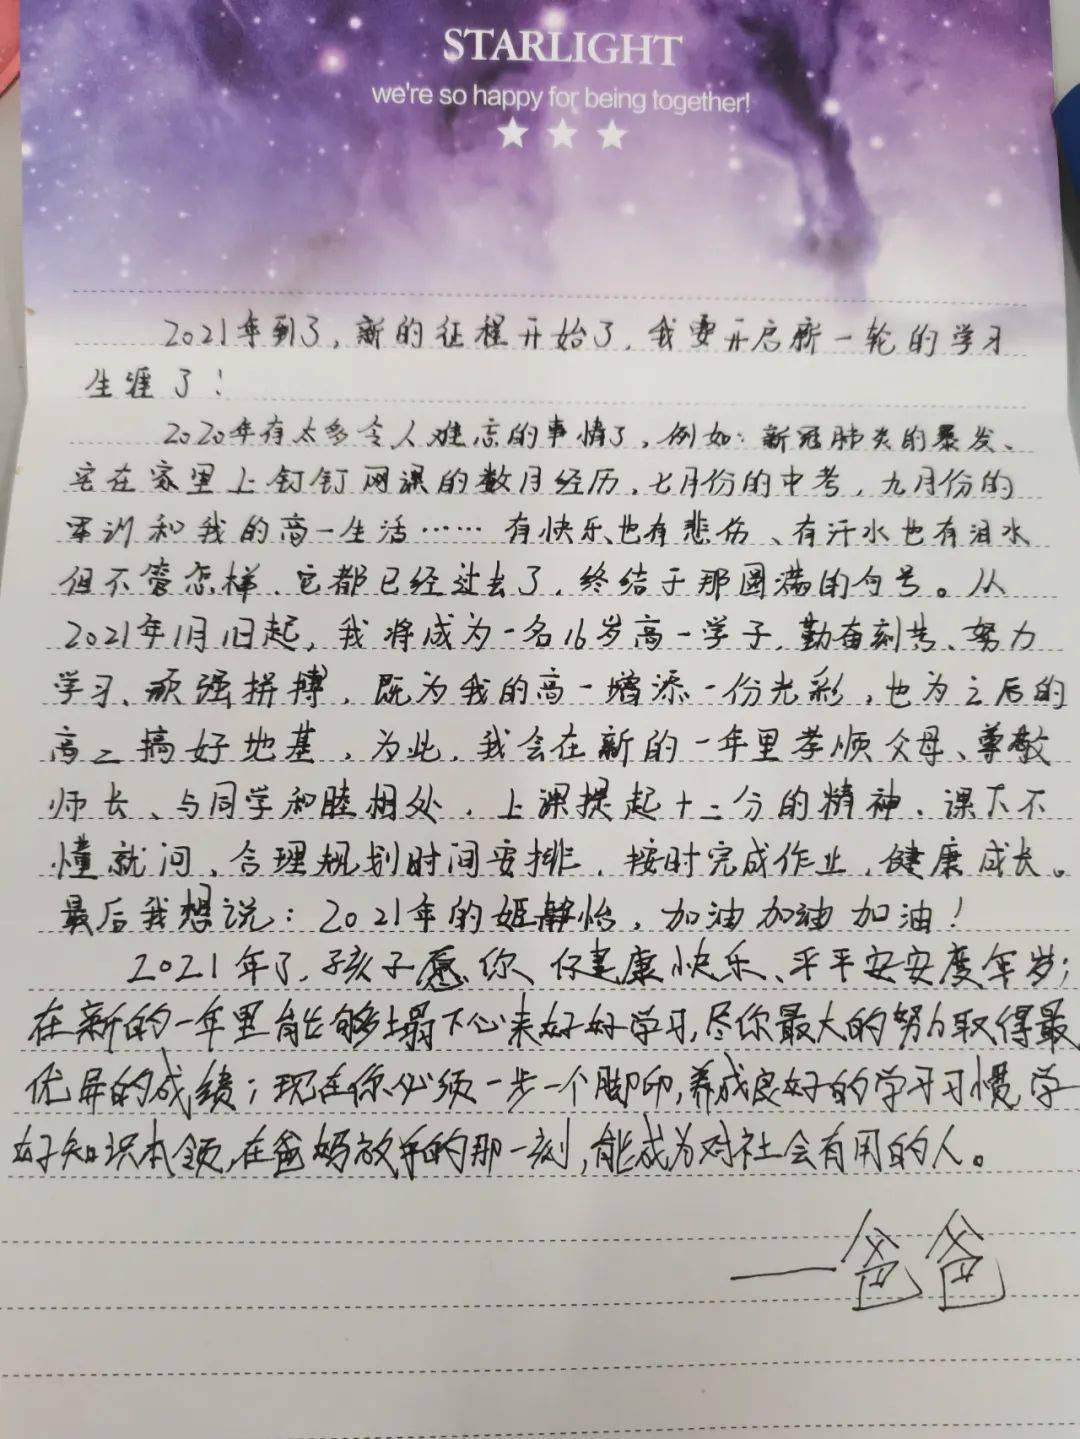 STARLIGHT
we're so happy for being together!
2021年到了,新的征程开始了,我要开启新一轮的学习
生涯了!
2020年有太多令人难忘的事情了,例如:新冠肺炎的暴发、
宅在家里上钉钉网课的数月经历,七月份的中考,九月份的
军训和我的高一生活……有快乐也有悲伤、有汗水也有泪水
但不管怎样、它都已经过去了,终结于那圆满的句号。从
2021年1月1日起,我将成为一名16岁高一学子,勤奋刻苦、努力
学习、顽强拼搏,既为我的高一增添一份光彩,也为之后的
高二搞好地基,为此,我会在新的一年里孝顺父母、尊敬
师长、与同学和睦相处,上课提起十二分的精神、课下不
懂就问、合理规划时间安排,按时完成作业,健康成长。
最后我想说:2021年的姬静怡,加油加油加油!
2021年了,孩子愿你 你健康快乐、平平安安度年岁;
在新的一年里能够塌下心来好好学习,尽你最大的努力取得最
优异的成绩;现在你必须一步一个脚印,养成良好的学习习惯,学
好知识本领,在爸妈放手的那一刻,能成为对社会有用的人。
——爸爸